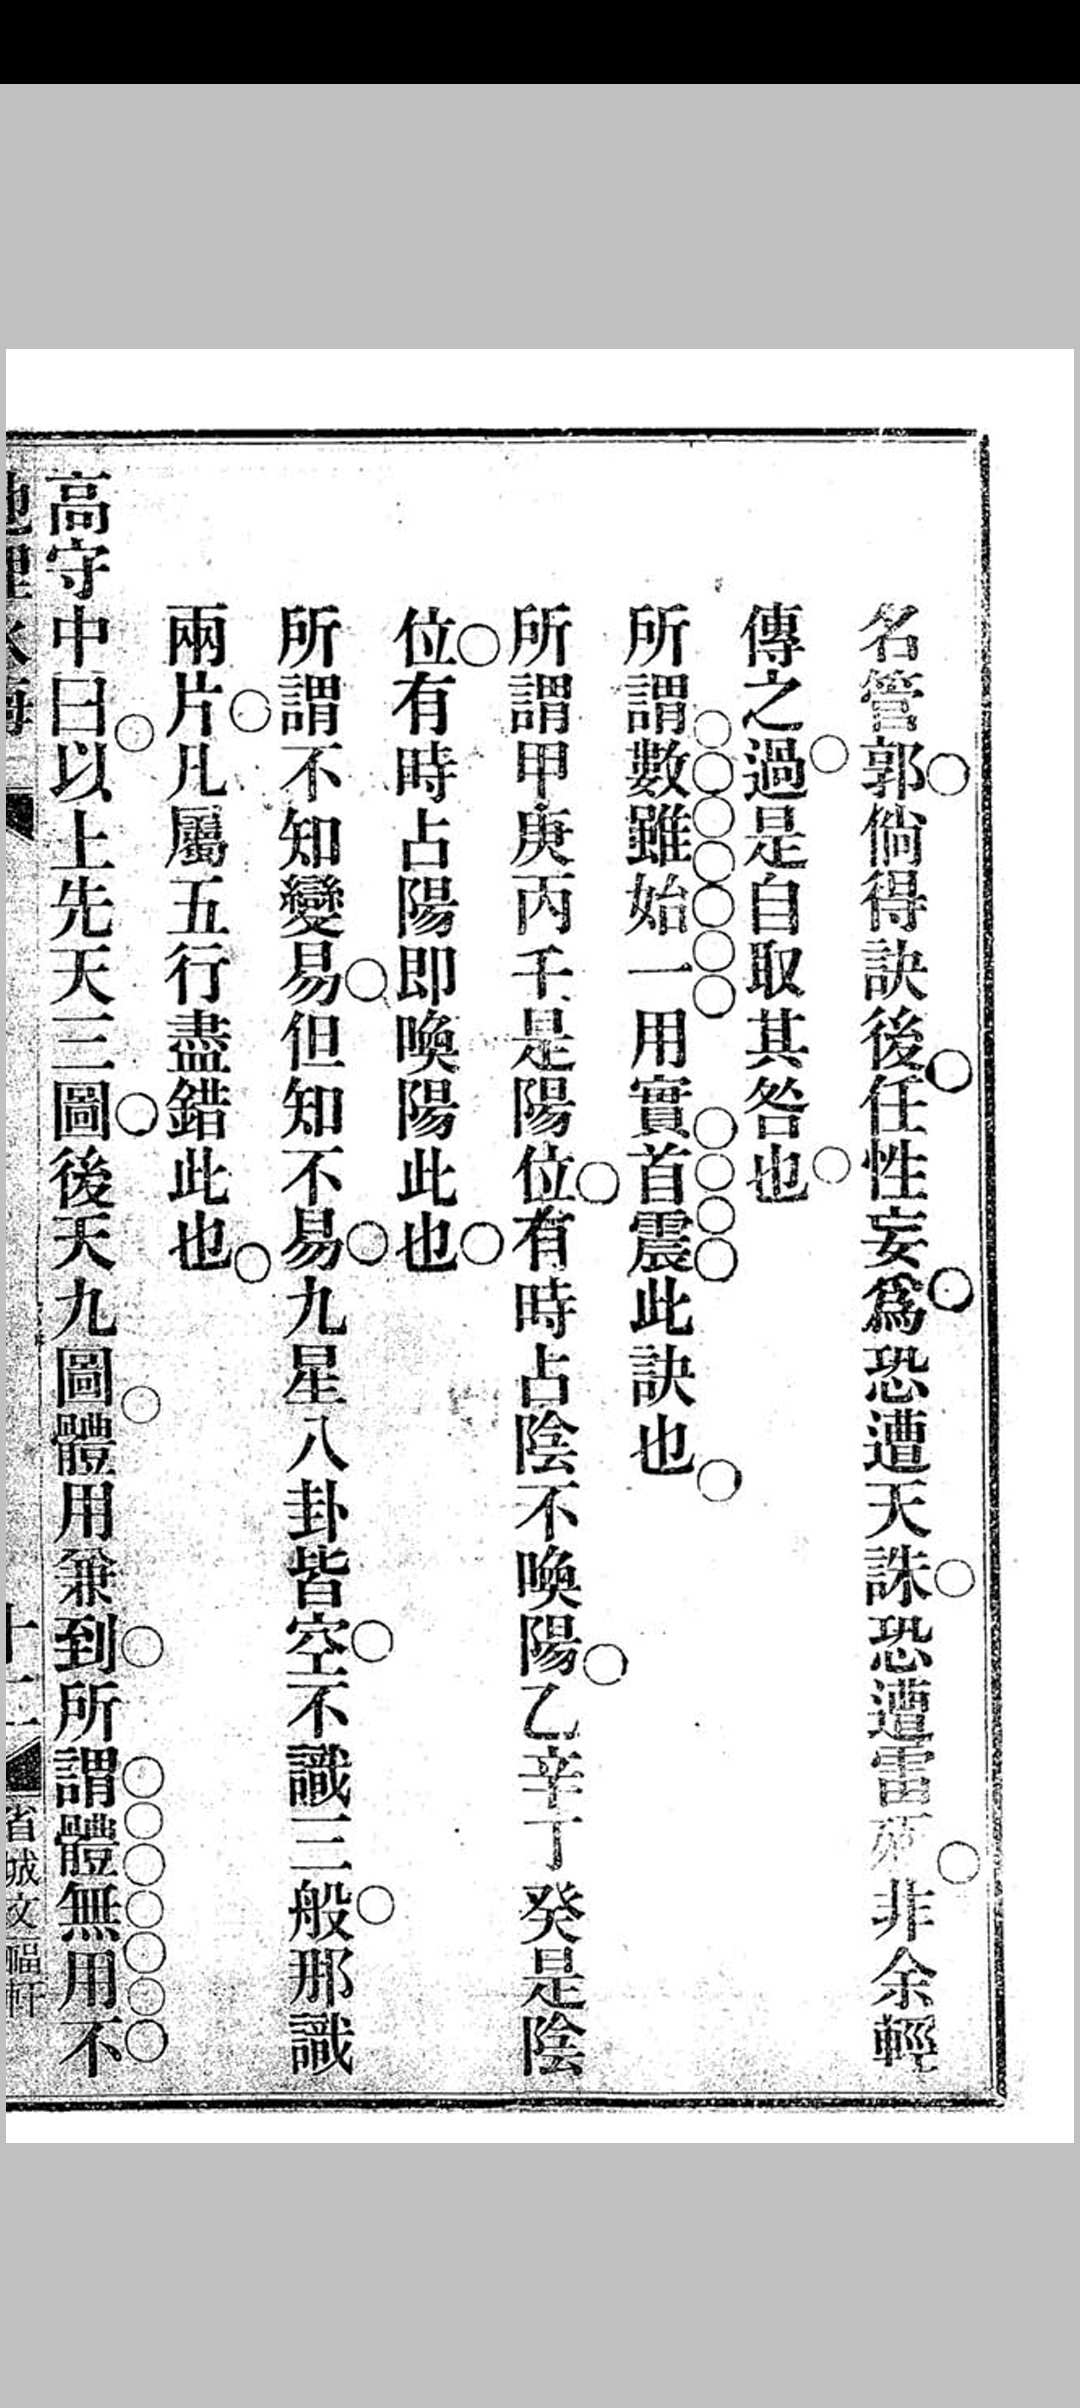 名管郭倘得訣後任性妄為恐遭天誅恐遭雷非余輕
傳之過是自取其咎也
所謂數雖始一用實首震此訣也
所謂甲庚丙壬是陽位有時占陰不喚陽乙辛丁癸是陰
位有時占陽即喚陽此也
所謂不知變易但知不易九星八卦皆空不識三般那識
兩片凡屬五行盡錯此也
高守中曰以上先天三圖後天九圖體用兼到所謂體無用不
十二
省城文福軒